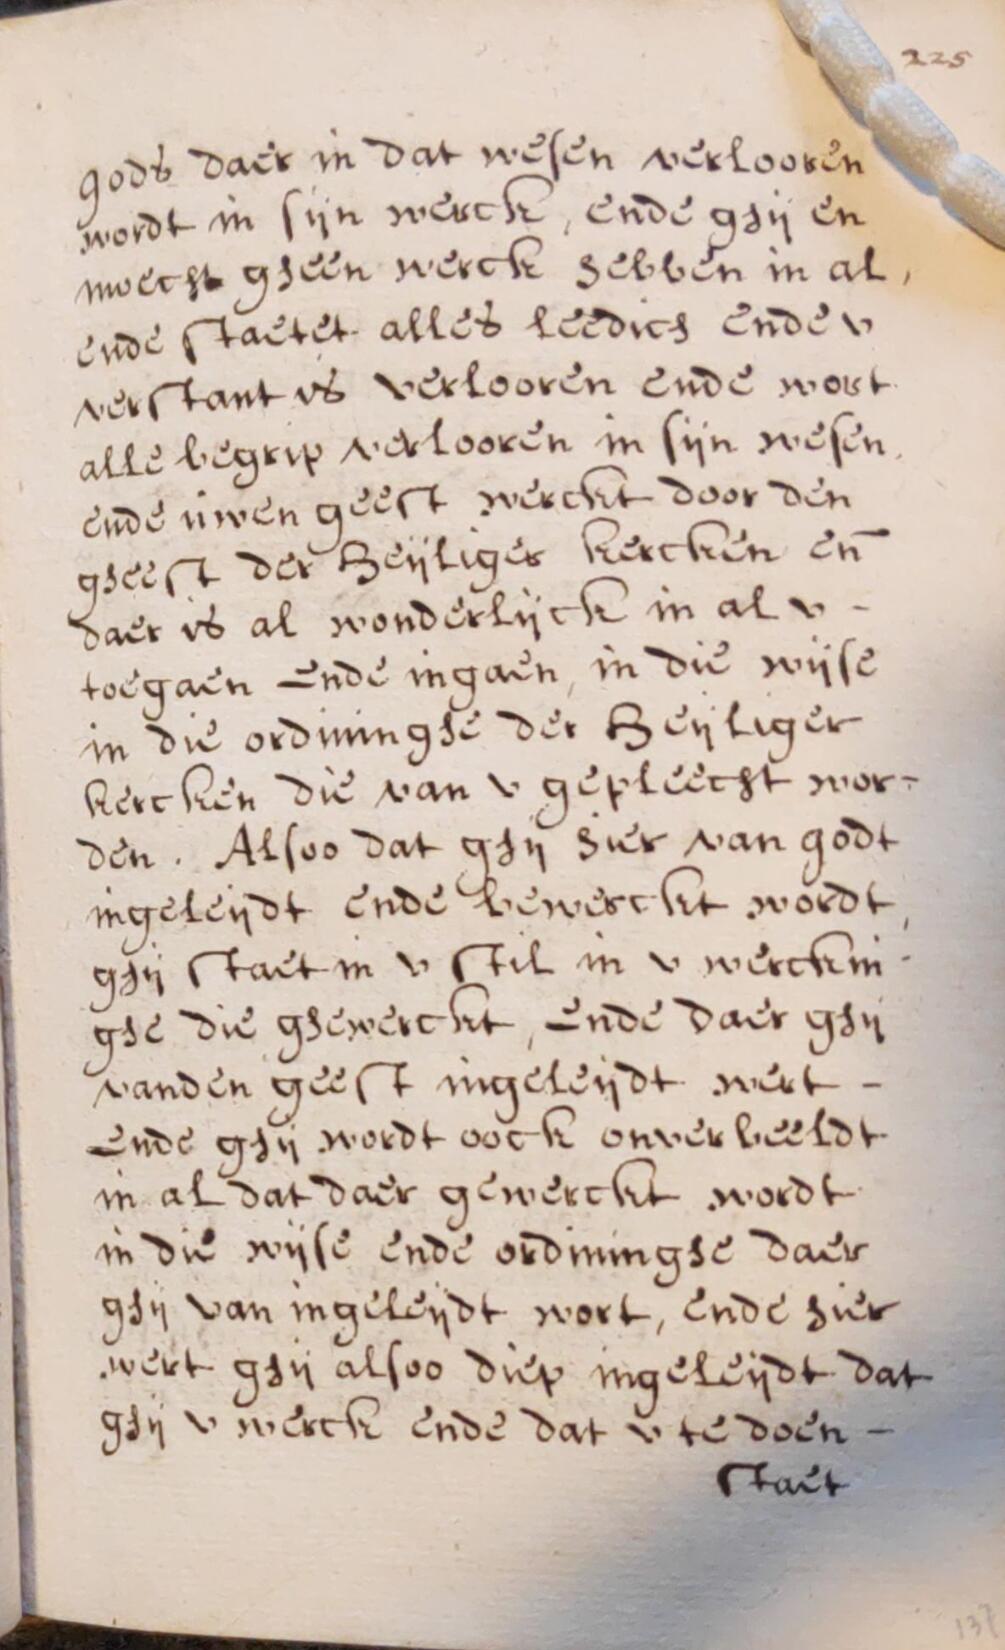 225
gods daer in dat wesen verlooren
wordt in sijn werck, ende ghij en
moecht gheen werck hebben in al,
ende staetet alles leedich ende v
verstant is verlooren ende wort
alle begrip verlooren in sijn wesen.
ende uwen geest werckt door den
gheest der Heijliger kercken en̄
daer is al wonderlijck in al v -
toegaen Ende ingaen, in die wijse
in die ordininghe der Heijliger
kercken die van v gepleecht wor-
den. Alsoo dat ghij hier van godt
ingeleijdt ende bewerckt wordt,
ghij staet in v stil in v werckin-
ghe die ghewerckt, Ende daer ghij
vanden geest ingeleijdt wert -
Ende ghij wordt oock onverbeeldt
in al dat daer gewerckt wordt
in die wijse ende ordininghe daer
ghij van ingeleijdt wort, ende hier
wert ghij alsoo diep ingeleijdt dat
ghij v werck ende dat v te doen -
staet
137